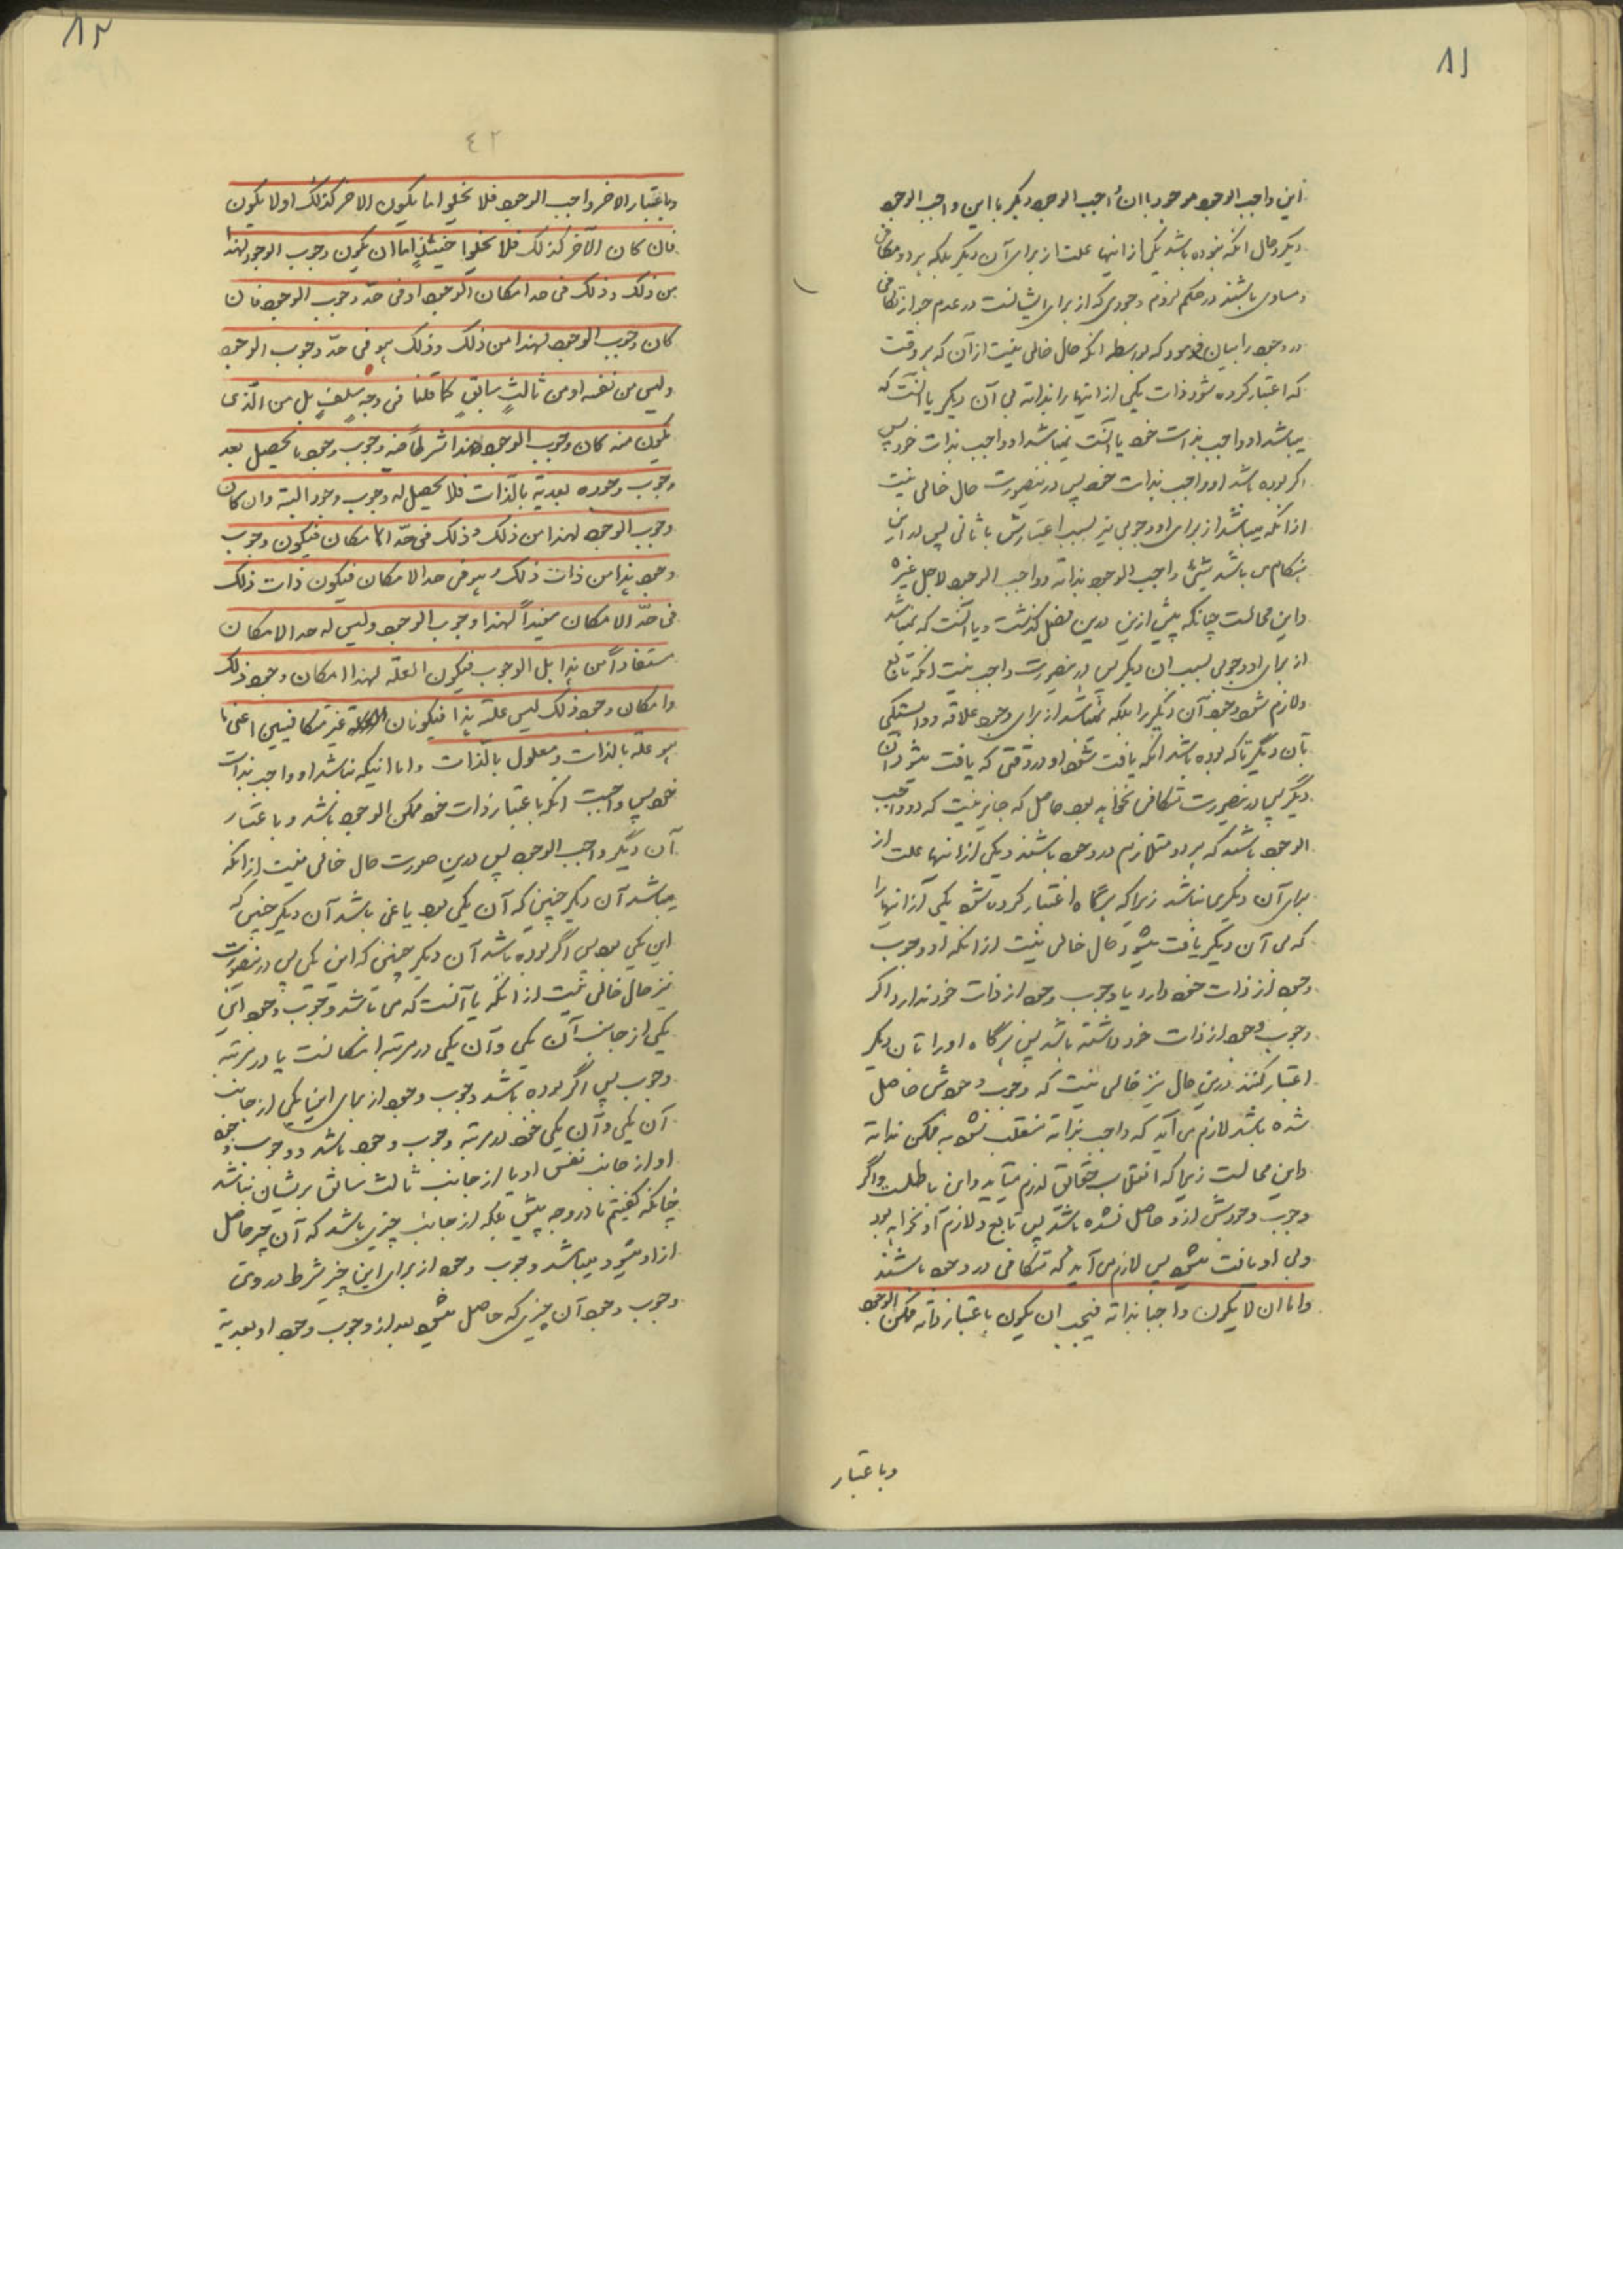 ۸۱
این واجب الوجود موجود باان واجب الوجود دیگر بااین واجب الوجود
دیگر و حال انکه نبوده باشد یکی از اینها علت از برای آن دیگر بلکه هر دو متکافی
و مساوی باشند در حکم لزوم وجودی که از برای ایشانست در عدم جواز تکافی
در وجود را بیان فرمود که بواسطه انکه حال خالی نیست از آن که هر وقت
که اعتبار کرده شود ذات یکی از اینها را بذاته بی آن دیگر یا انست که
میباشد او واجب بذات خود یا انست نمیباشد او واجب بذات خود پس
اگر بوده باشد او واجب بذات خود پس درینصورت حال خالی نیست
ازانکه میباشد از برای او وجوبی نیز بسبب اعتبارش با ثانی پس در این
هنگام می باشد شیئ واجب الوجود بذاته و واجب الوجود لاجل غیره
واین محالست چنانکه پیش ازین درین فصل گذشت و یا انست که نمیباشد
از برای او وجوبی بسبب ان دیگر پس درینصورت واجب نیست انکه تابع
ولازم شود وجود آن دیگر را بلکه نمیباشد از برای وجود علاقه و وابستگی
بآن دیگر تا که بوده باشد انکه یافت شود او در وقتی که یافت میشود آن
دیگر پس درینصورت تکافی نخواهد بود حاصل که جایز نیست که دو واجب
الوجود باشند که هر دو متلازم در وجود باشند و یکی از اینها علت از
برای آن دیگری نباشد زیرا که هرگاه اعتبار کرده شود یکی از اینها را
که بی آن دیگر یافت میشود حال خالی نیست ازانکه او وجوب
وجود از ذات خود دارد یا وجوب وجود از ذات خود ندارد اگر
وجوب وجود از ذات خود داشته باشد پس هرگاه او را تا بان دیگر
اعتبار کنند درین حال نیز خالی نیست که وجوب وجودش حاصل
شده باشد لازم می آید که واجب بذاته منقلب شود به ممکن بذاته
واین محالست زیرا که انقلاب حقائق لازم میآید واین باطلست واگر
وجوب وجودش ازو حاصل نشده باشد پس تابع ولازم او نخواهد بود
وبی او یافت میشود پس لازم می آید که متکافی در وجود باشند
واما ان لا یکون واجبا بذاته فیجب ان یکون باعتبار ذاته ممکن الوجود
وباعتبار
۸۲
٤٢
وباعتبار الاخر واجب الوجود فلا یخلوا اما یکون الاخر کذلک اولا یکون
فان کان الآخر کذلک فلا یخلوا حینئذ اما ان یکون وجوب الوجود لهذا
من ذلک وذلک فی حد امکان الوجود او فی حدّ وجوب الوجود فان
کان وجوب الوجود لهذا من ذلک وذلک هو فی حدّ وجوب الوجود
ولیس من نفسه او من ثالثٍ سابقٍ کما قلنا فی وجهٍ سلف بل من الّذی
یکون منه کان وجوب الوجود هذا شرطاً فیه وجوب وجود ما یحصل بعد
وجوب وجوده بعدیّة بالذّات فلا یحصل له وجوب وجود البتة وان کان
وجوب الوجود لهذا من ذلک وذلک فی حدّ الامکان فیکون وجوب
وجود هذا من ذات ذلک وهو فی حد الامکان فیکون ذات ذلک
فی حدّ الامکان مفیداً لهذا وجوب الوجود ولیس له حد الامکان
مستفاداً من هذا بل الوجوب فیکون العلّة لهذا امکان وجود ذلک
وامکان وجود ذلک لیس علّة هذا فیکونان غیر متکافیین اعنی ما
هو علّة بالذات ومعلول بالذات واما انیکه نباشد او واجب بذات
خود پس واجبت انکه باعتبار ذات خود ممکن الوجود باشد وباعتبار
آن دیگر واجب الوجود پس درین صورت حال خالی نیست ازانکه
میباشد آن دیگر چنین که آن یکی بود یا نمی باشد آن دیگر چنین که
این یکی بود پس اگر بوده باشد آن دیگر چنین که این یکی پس درینصورت
نیز حال خالی نیست ازانکه یا آنست که می باشد وجوب وجود این
یکی از جانب آن یکی وآن یکی در مرتبه امکانست یا در مرتبه
وجوب پس اگر بوده باشد وجوب وجود از برای این یکی از جانب
آن یکی وآن یکی خود در مرتبه وجوب وجود باشد و وجوب وجود
او از جانب نفس او یا از جانب ثالث سابق بریشان نباشد
چنانکه گفتیم ما در وجه پیش بلکه از جانب چیزی باشد که آن چیز حاصل
ازاو میشود میباشد وجوب وجود از برای این چیز شرط در وی
وجوب وجود آن چیزی که حاصل میشود بعد از وجوب وجود او بعدیة